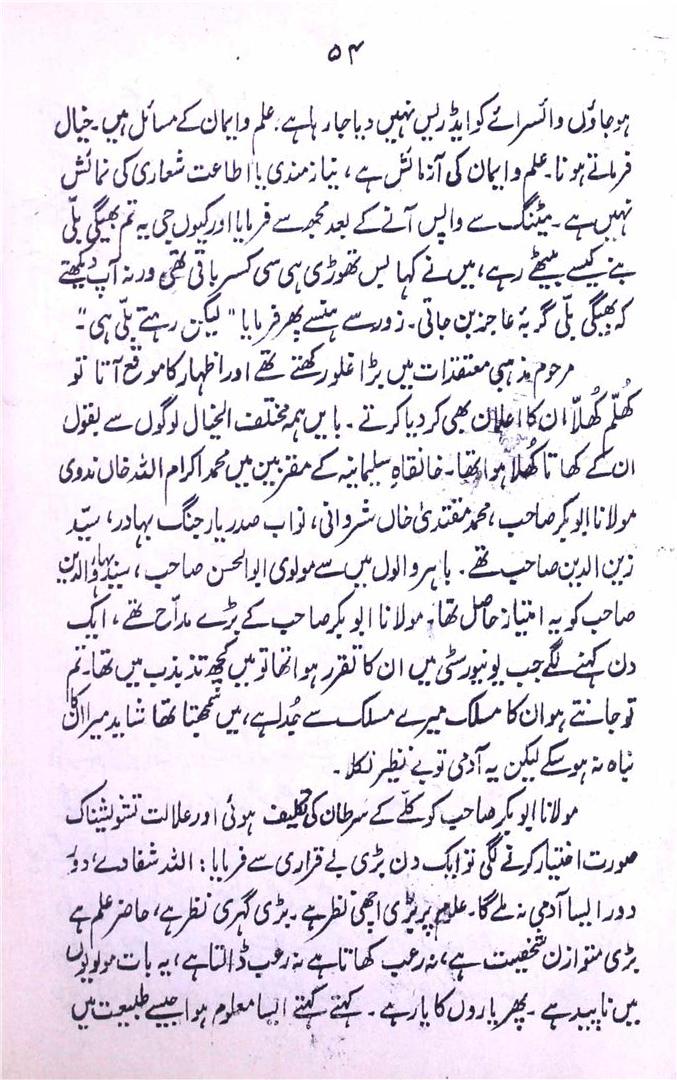 ۵۴
ہو جاؤں وائسرائے کو ایڈریس نہیں دیا جا رہا ہے، علم و ایمان کے مسائل ہیں۔ خیال
فرماتے ہونا۔ علم و ایمان کی آزمائش ہے، نیاز مندی یا اطاعت شعاری کی نمائش
نہیں ہے۔ میٹنگ سے واپس آنے کے بعد مجھ سے فرمایا اور کیوں جی یہ تم بھیگی بلّی
بنے کیسے بیٹھے رہے، میں نے کہا بس تھوڑی ہی سی کسر باقی تھی ورنہ آپ دیکھتے
کہ بھیگی بلّی گربۂ عاجز بن جاتی۔ زور سے ہنسے پھر فرمایا "لیکن رہتے بلّی ہی"۔
مرحوم مذہبی معتقدات میں بڑا غلو رکھتے تھے اور اظہار کا موقع آتا تو
کُھلّم کُھلّا ان کا اعلان بھی کر دیا کرتے۔ بایں ہمہ مختلف الخیال لوگوں سے بقول
ان کے کھاتا کُھلا ہوا تھا۔ خانقاہِ سلیمانیہ کے مقربین میں محمد اکرام اللہ خاں ندوی
مولانا ابوبکر صاحب، محمد مقتدیٰ خاں شروانی، نواب صدر یار جنگ بہادر، سیّد
زین الدین صاحب تھے۔ باہر والوں میں سے مولوی ابوالحسن صاحب، سید بہاؤالدین
صاحب کو یہ امتیاز حاصل تھا۔ مولانا ابوبکر صاحب کے بڑے مدّاح تھے، ایک
دن کہنے لگے جب یونیورسٹی میں ان کا تقرر ہوا تھا تو میں کچھ تذبذب میں تھا۔ تم
تو جانتے ہو ان کا مسلک میرے مسلک سے جُدا ہے، میں سمجھتا تھا شاید میرا ان کا
نباہ نہ ہو سکے لیکن یہ آدمی تو بے نظیر نکلا۔
مولانا ابوبکر صاحب کو کلّے کے سرطان کی تکلیف ہوئی اور علالت تشویشناک
صورت اختیار کرنے لگی تو ایک دن بڑی بے قراری سے فرمایا: اللہ شفا دے، دور
دور ایسا آدمی نہ ملے گا۔ علوم پر بڑی اچھی نظر ہے۔ بڑی گہری نظر ہے، حاضر علم ہے
بڑی متوازن شخصیت ہے، نہ رعب کھاتا ہے نہ رعب ڈالتا ہے، یہ بات مولویوں
میں ناپید ہے۔ پھر یاروں کا یار ہے۔ کہتے کہتے ایسا معلوم ہوا جیسے طبیعت میں